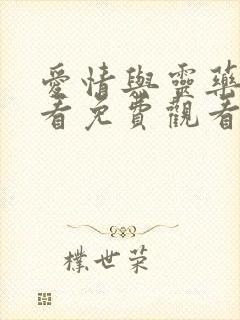 愛情與靈藥
看免費觀看
樸世荣